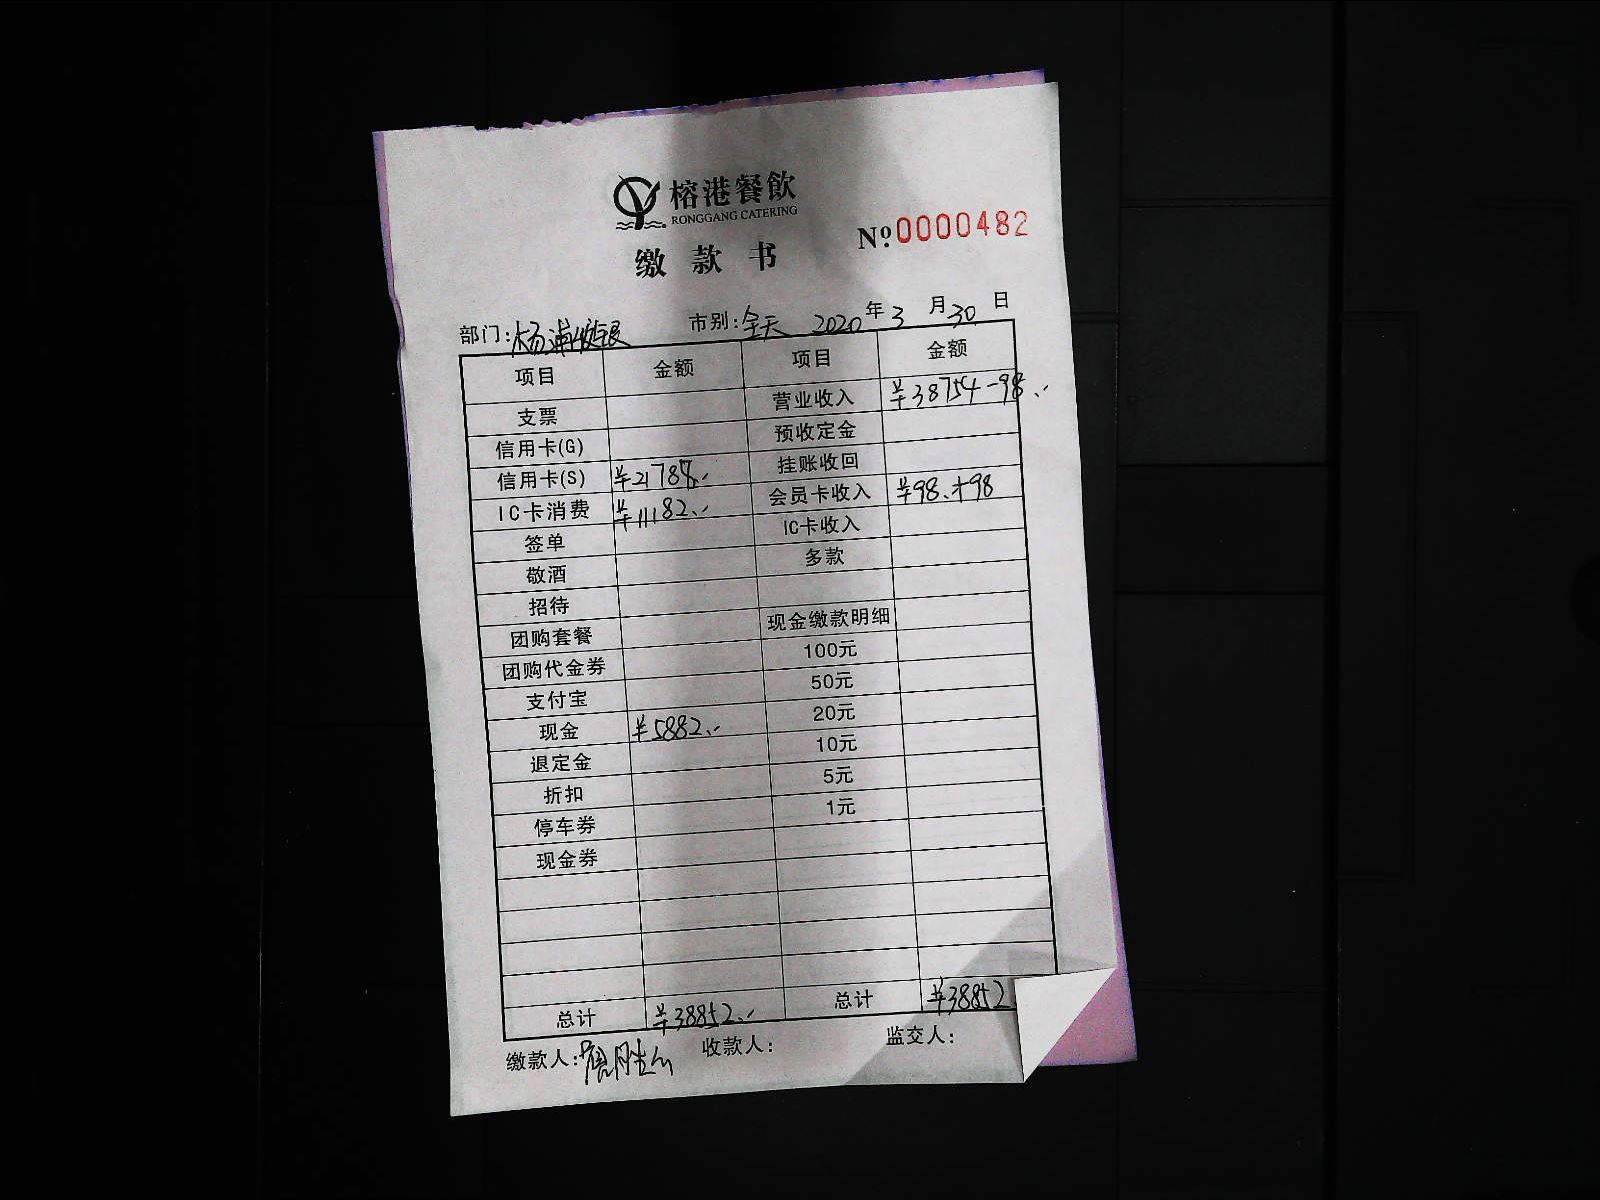 榕港餐飲
RONGGANG CATERING
缴款书
№.0000482
部门:杨浦收银 市别:全天 2020年3月30日
项目 金额 项目 金额
支票 营业收入 ¥38754-98.
信用卡(G) 预收定金
信用卡(S) ¥21788. 挂账收回
IC卡消费 ¥11182. 会员卡收入 ¥98.+98
签单 IC卡收入
敬酒 多款
招待
团购套餐 现金缴款明细
团购代金券 100元
支付宝 50元
现金 ¥5882. 20元
退定金 10元
折扣 5元
停车券 1元
现金券
总计 ¥38852. 总计 ¥38852
缴款人: 收款人: 监交人: